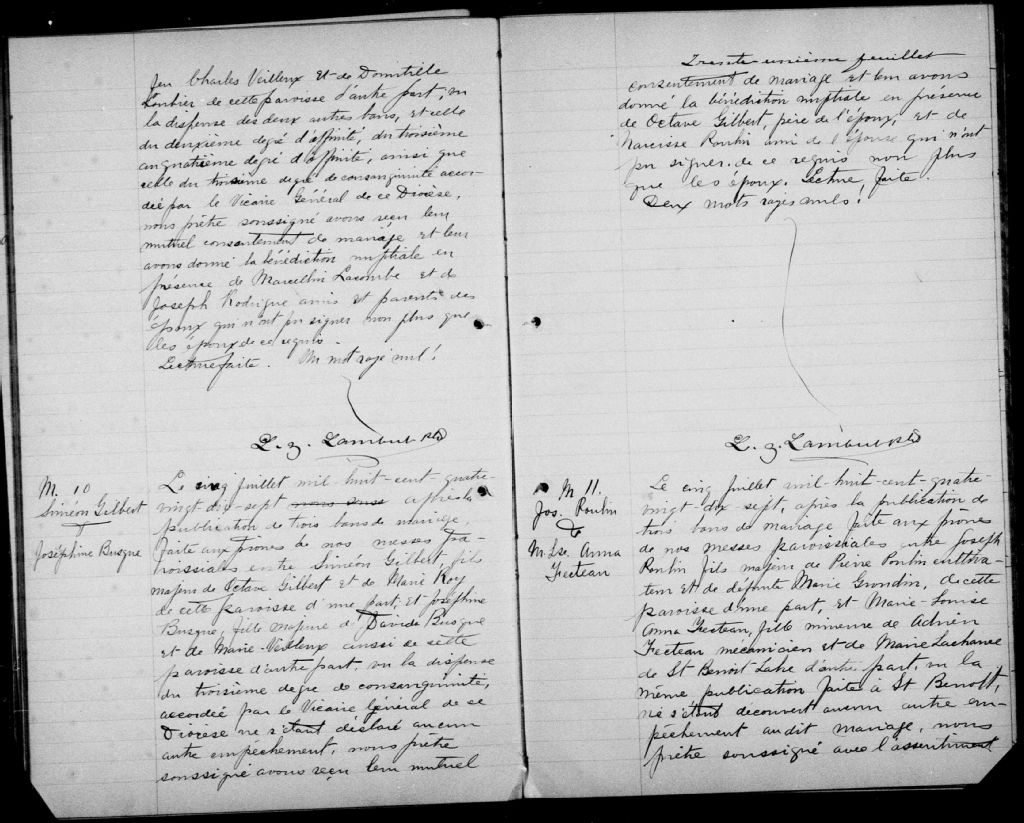 feu Charles Veilleux et de Domitille
Poulier de cette paroisse d'autre part, vu
la dispense des deux autres bans, et celle
du deuxième degré d'affinité, du troisième
au quatrième degré d'affinité, ainsi que
celle du troisième degré de consanguinité accor-
dée par le Vicaire Général de ce Diocèse,
nous prêtre soussigné avons reçu leur
mutuel consentement de mariage et leur
avons donné la bénédiction nuptiale en
présence de Marcellin Lacombe et de
Joseph Rodrigue amis et parents des
époux qui n'ont pu signer non plus que
les époux de ce requis.
Lecture faite. Un mot rayé nul!
L. Z. Lambert Ptr
M. 10
Siméon Gilbert
&
Joséphine Busque
Le cinq juillet mil-huit-cent-quatre-
vingt-dix-sept nous après la
publication de trois bans de mariage,
faite aux prônes de nos messes pa-
roissiales entre Siméon Gilbert, fils
majeur de Octave Gilbert et de Marie Roy
de cette paroisse d'une part, et Joséphine
Busque, fille majeure de David Busque
et de Marie Veilleux aussi de cette
paroisse d'autre part, vu la dispense
du troisième degré de consanguinité,
accordée par le Vicaire Général de ce
Diocèse ne s'étant déclaré aucun
autre empêchement, nous prêtre
soussigné avons reçu leur mutuel
Trente-unième feuillet
consentement de mariage et leur avons
donné la bénédiction nuptiale en présence
de Octave Gilbert, père de l'époux, et de
Narcisse Poulin ami de l'épouse qui n'ont
pu signer de ce requis non plus
que les époux. Lecture faite.
Deux mots rayés nuls!
L. Z. Lambert Ptr
M 11.
Jos. Poulin
&
M. Lse. Anna
Fecteau
Le cinq juillet mil-huit-cent-quatre-
vingt-dix-sept, après la publication de
trois bans de mariage faite aux prônes
de nos messes paroissiales entre Joseph
Poulin fils majeur de Pierre Poulin cultiva-
teur et de défunte Marie Grondin, de cette
paroisse d'une part, et Marie-Louise
Anna Fecteau, fille mineure de Adrien
Fecteau mécanicien et de Marie Lachance
de St Benoit Labre d'autre part vu la
même publication faite à St Benoit,
ne s'étant découvert aucun autre em-
pêchement audit mariage, nous
prêtre soussigné avec l'assentiment